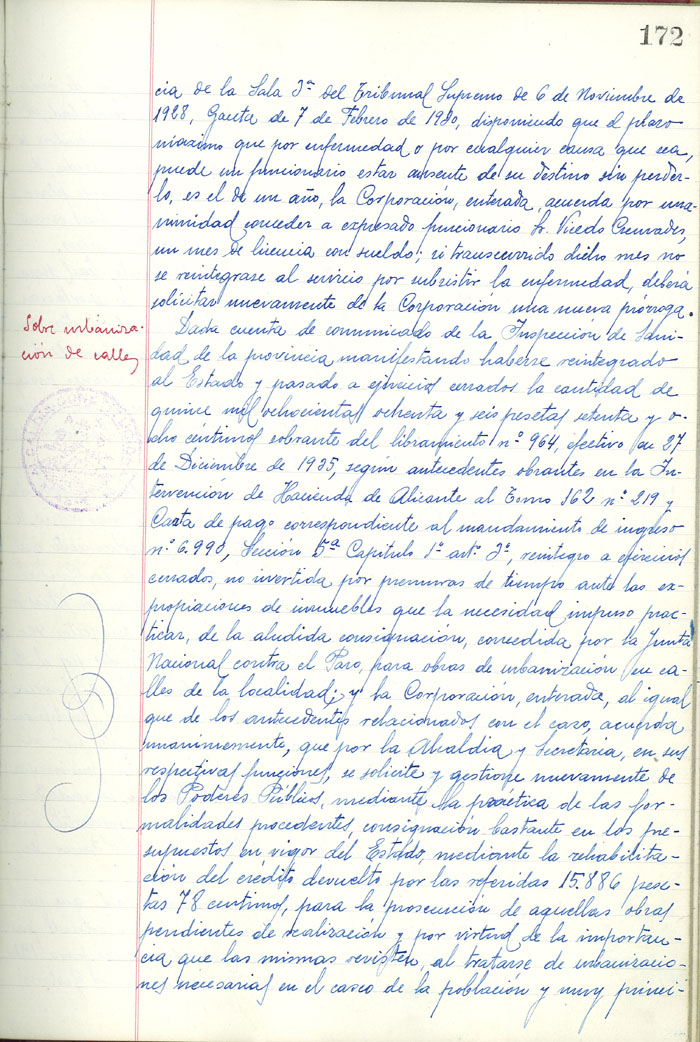 172
cia de la Sala 3ª del Tribunal Supremo de 6 de Noviembre de
1928, Gaceta de 7 de Febrero de 1930, disponiendo que el plazo
máximo que por enfermedad o por cualquier causa que sea,
puede un funcionario estar ausente de su destino sin perder-
lo, es el de un año, la Corporación, enterada, acuerda por una-
nimidad conceder a expresado funcionario Sr. Vicedo
un mes de licencia con sueldo; si transcurrido dicho mes no
se reintegrase al servicio por subsistir la enfermedad, deberá
solicitar nuevamente de la Corporación una nueva prórroga.
Sobre urbaniza-
ción de calles
Dada cuenta de comunicado de la Inspección de Sani-
dad de la provincia manifestando haberse reintegrado
al Estado y pasado a ejercicios cerrados la cantidad de
quince mil ochocientas ochenta y seis pesetas setenta y o-
cho céntimos sobrante del libramiento nº 964, efectivo en 27
de Diciembre de 1935, según antecedentes obrantes en la In-
tervención de Hacienda de Alicante al Tomo 162 nº 219 y
Carta de pago correspondiente al mandamiento de ingreso
nº 6.990, Sección 5ª Capítulo 1º artº 3º, reintegro a ejercicios
cerrados, no invertida por premuras de tiempo ante las ex-
propiaciones de inmuebles que la necesidad impuso prac-
ticar, de la aludida consignación, concedida por la Junta
Nacional contra el Paro, para obras de urbanización en ca-
lles de la localidad; y la Corporación, enterada, al igual
que de los antecedentes relacionados con el caso, acuerda
unanimemente, que por la Alcaldía y Secretaría, en sus
respectivas funciones, se solicite y gestione nuevamente de
los Poderes Públicos, mediante la práctica de las for-
malidades procedentes, consignación bastante en los pre-
supuestos en vigor del Estado, mediante la rehabilita-
ción del crédito devuelto por las referidas 15.886 pese-
tas 78 centimos, para la prosecución de aquellas obras
pendientes de realización y por virtud de la importan-
cia que las mismas revisten, al tratarse de urbanizacio-
nes necesarias en el casco de la población y muy princi-